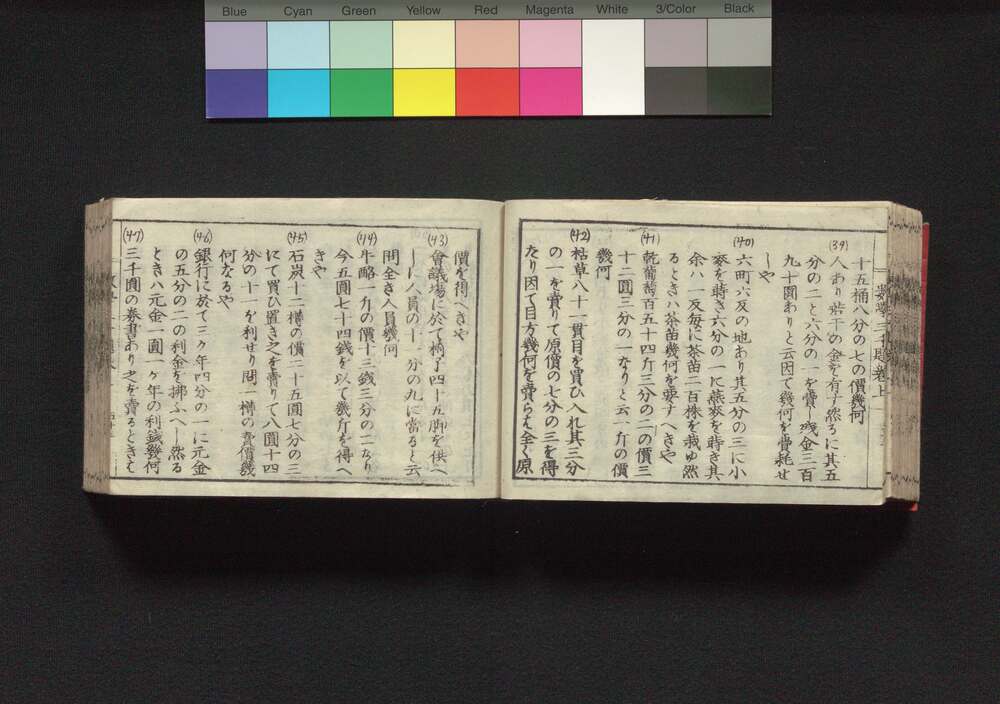 Blue Cyan Green Yellow Red Magenta White 3/Color Black
數學三千題卷上
十五桶八分の七の價幾何
(39)
人あり若干の金を有す然るに其五
分の二と六分の一を費し殘金三百
九十圓ありと云因て幾何を費耗せ
しや
(40)
六町六反の地あり其五分の三に小
麥を蒔き六分の一に燕麥を蒔き其
余ハ一反毎に茶苗二百株を栽ゆ然
るときハ茶苗幾何を要すへきや
(41)
乾葡萄百五十四斤三分の二の價三
十二圓三分の一なりと云一斤の價
幾何
(42)
枯草八十一貫目を買ひ入れ其三分
の一を賣りて原價の七分の三を得
たり因て目方幾何を賣らは全く原
價を得へきや
(43)
會議場に於て椅子四十五脚を供へ
しに人員の十一分の九に當ると云
問全き人員幾何
(44)
牛酪一斤の價十三錢三分の二なり
今五圓七十四錢を以て幾斤を得へ
きや
(45)
石炭十二樽の價二十五圓七分の三
にて買ひ置き之を賣りて八圓十四
分の十一を利せり問一樽の賣價幾
何なるや
(46)
銀行に於て三ヶ年四分の一に元金
の五分の二の利金を拂ふへし然る
ときハ元金一圓一ヶ年の利錢幾何
(47)
三千圓の券書あり之を賣るときは